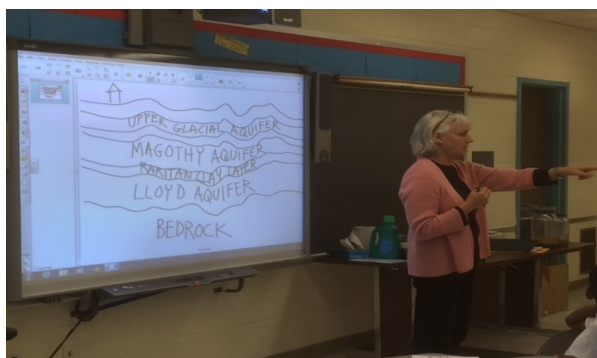 UPPER GLACIAL AQUIFER
MAGOTHY AQUIFER
RARITAN CLAY LAYER
LLOYD AQUIFER
BEDROCK